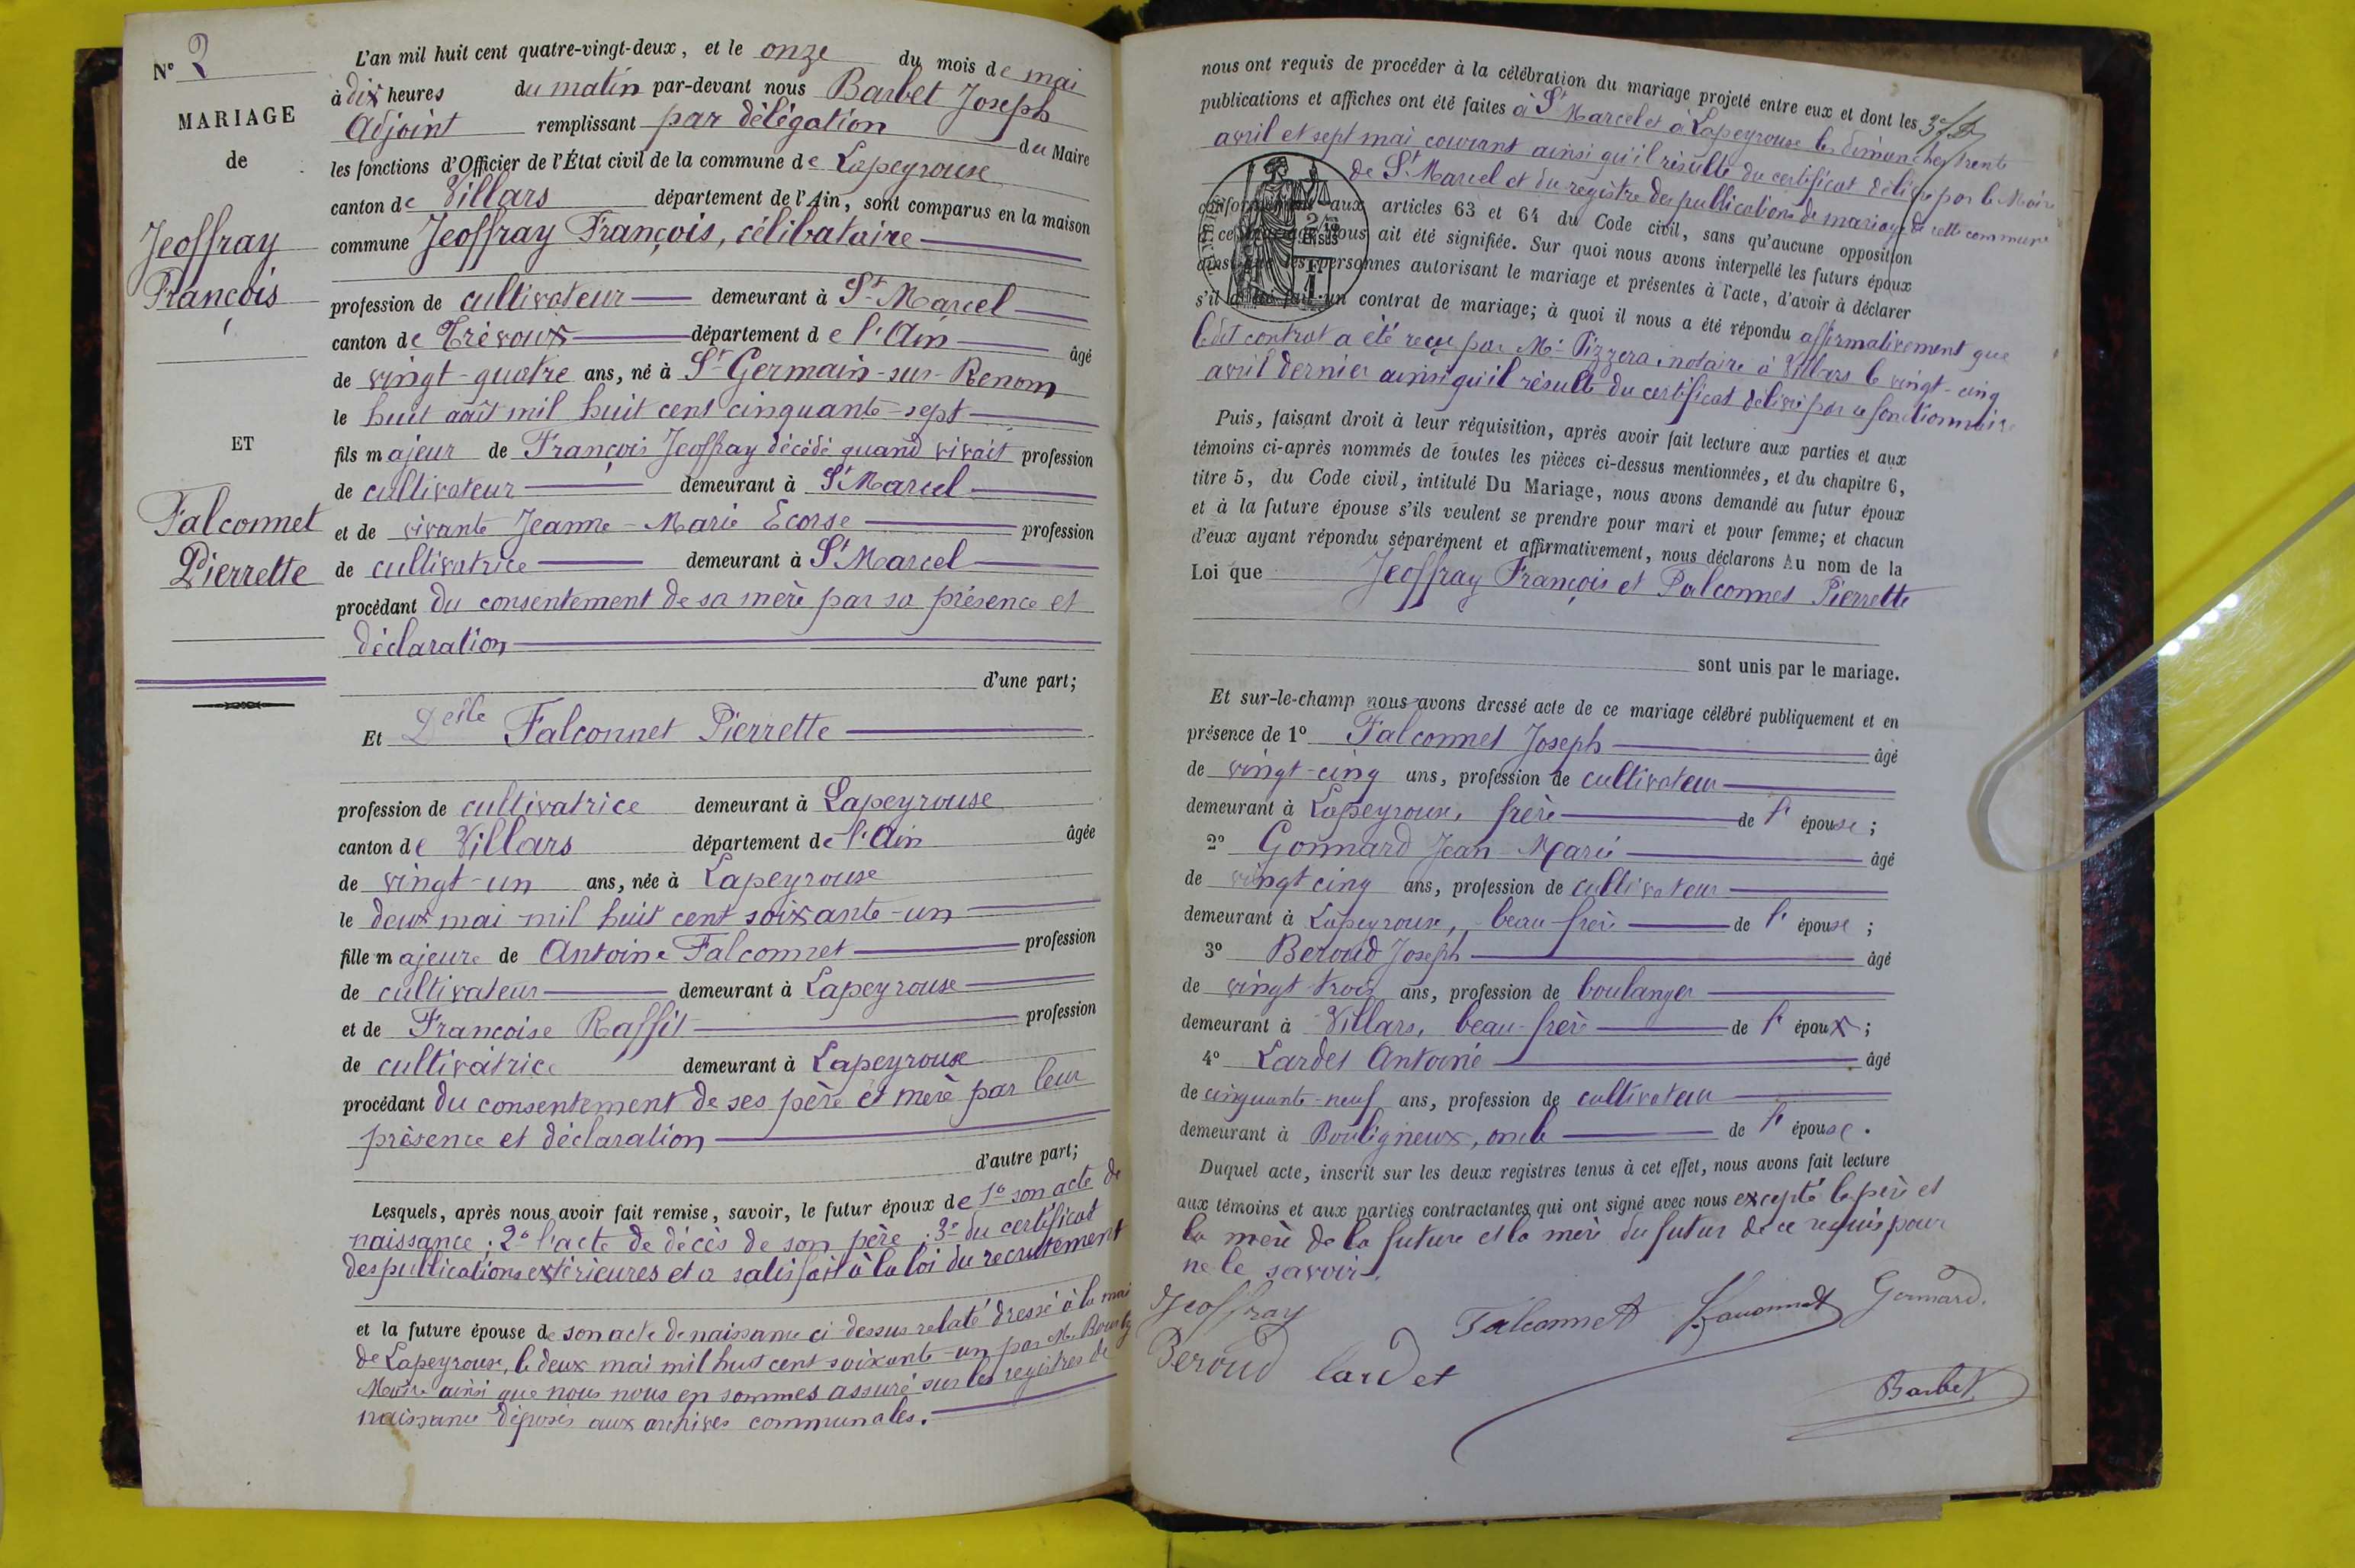 N° 2
MARIAGE
de
Jeoffray
François
ET
Falconnet
Pierrette
L'an mil huit cent quatre-vingt-deux, et le onze du mois de mai
à dix heures du matin par-devant nous Barbet Joseph
Adjoint remplissant par délégation du Maire
les fonctions d'Officier de l'État civil de la commune de Lapeyrouse
canton de Villars département de l'Ain, sont comparus en la maison
commune Jeoffray François, célibataire
profession de cultivateur demeurant à St Marcel
canton de Trévoux département de l'Ain âgé
de vingt-quatre ans, né à St Germain-sur-Renom
le huit août mil huit cent cinquante-sept
fils majeur de François Jeoffray décédé quand vivait profession
de cultivateur demeurant à St Marcel
et de vivante Jeanne-Marie Ecorse profession
de cultivatrice demeurant à St Marcel
procédant du consentement de sa mère par sa présence et
déclaration
d'une part;
Et Delle Falconnet Pierrette
profession de cultivatrice demeurant à Lapeyrouse
canton de Villars département de l'Ain âgée
de vingt-un ans, née à Lapeyrouse
le deux mai mil huit cent soixante-un
fille majeure de Antoine Falconnet profession
de cultivateur demeurant à Lapeyrouse
et de Françoise Raffit profession
de cultivatrice demeurant à Lapeyrouse
procédant du consentement de ses père et mère par leur
présence et déclaration
d'autre part;
Lesquels, après nous avoir fait remise, savoir, le futur époux de 1° son acte de
naissance; 2° l'acte de décès de son père; 3° du certificat
des publications extérieures et a satisfait à la loi du recrutement
et la future épouse de son acte de naissance ci dessus relaté dressé à la mai
de Lapeyrouse, le deux mai mil huit cent soixante-un par M.
Maire ainsi que nous nous en sommes assuré sur les registres de
naissance déposés aux archives communales.
nous ont requis de procéder à la célébration du mariage projeté entre eux et dont les
publications et affiches ont été faites à St Marcel et à Lapeyrouse les dimanches trente
avril et sept mai courant ainsi qu'il résulte du certificat délivré par le Maire
de St Marcel et du registre des publications de mariage de cette commune
conformément aux articles 63 et 64 du Code civil, sans qu'aucune opposition
à ce mariage nous ait été signifiée. Sur quoi nous avons interpellé les futurs époux
ainsi que les personnes autorisant le mariage et présentes à l'acte, d'avoir à déclarer
s'il a été fait un contrat de mariage; à quoi il nous a été répondu affirmativement que
ledit contrat a été reçu par Me Pizzera, notaire à Villars le vingt-cinq
avril dernier ainsi qu'il résulte du certificat délivré par ce fonctionnaire
Puis, faisant droit à leur réquisition, après avoir fait lecture aux parties et aux
témoins ci-après nommés de toutes les pièces ci-dessus mentionnées, et du chapitre 6,
titre 5, du Code civil, intitulé Du Mariage, nous avons demandé au futur époux
et à la future épouse s'ils veulent se prendre pour mari et pour femme; et chacun
d'eux ayant répondu séparément et affirmativement, nous déclarons Au nom de la
Loi que Jeoffray François et Falconnet Pierrette
sont unis par le mariage.
Et sur-le-champ nous avons dressé acte de ce mariage célébré publiquement et en
présence de 1° Falconnet Joseph âgé
de vingt-cinq ans, profession de cultivateur
demeurant à Lapeyrouse, frère de l' épouse;
2° Gonnard Jean Marie âgé
de vingt cinq ans, profession de cultivateur
demeurant à Lapeyrouse, beau-frère de l' épouse;
3° Beroud Joseph âgé
de vingt trois ans, profession de boulanger
demeurant à Villars, beau-frère de l' époux;
4° Lardet Antoine âgé
de cinquante-neuf ans, profession de cultivateur
demeurant à Bouligneux, oncle de l' épouse.
Duquel acte, inscrit sur les deux registres tenus à cet effet, nous avons fait lecture
aux témoins et aux parties contractantes qui ont signé avec nous excepté le père et
la mère de la future et la mère du futur de ce requis pour
ne le savoir.
Jeoffray Falconnet Gonnard.
Beroud Lardet
Barbet